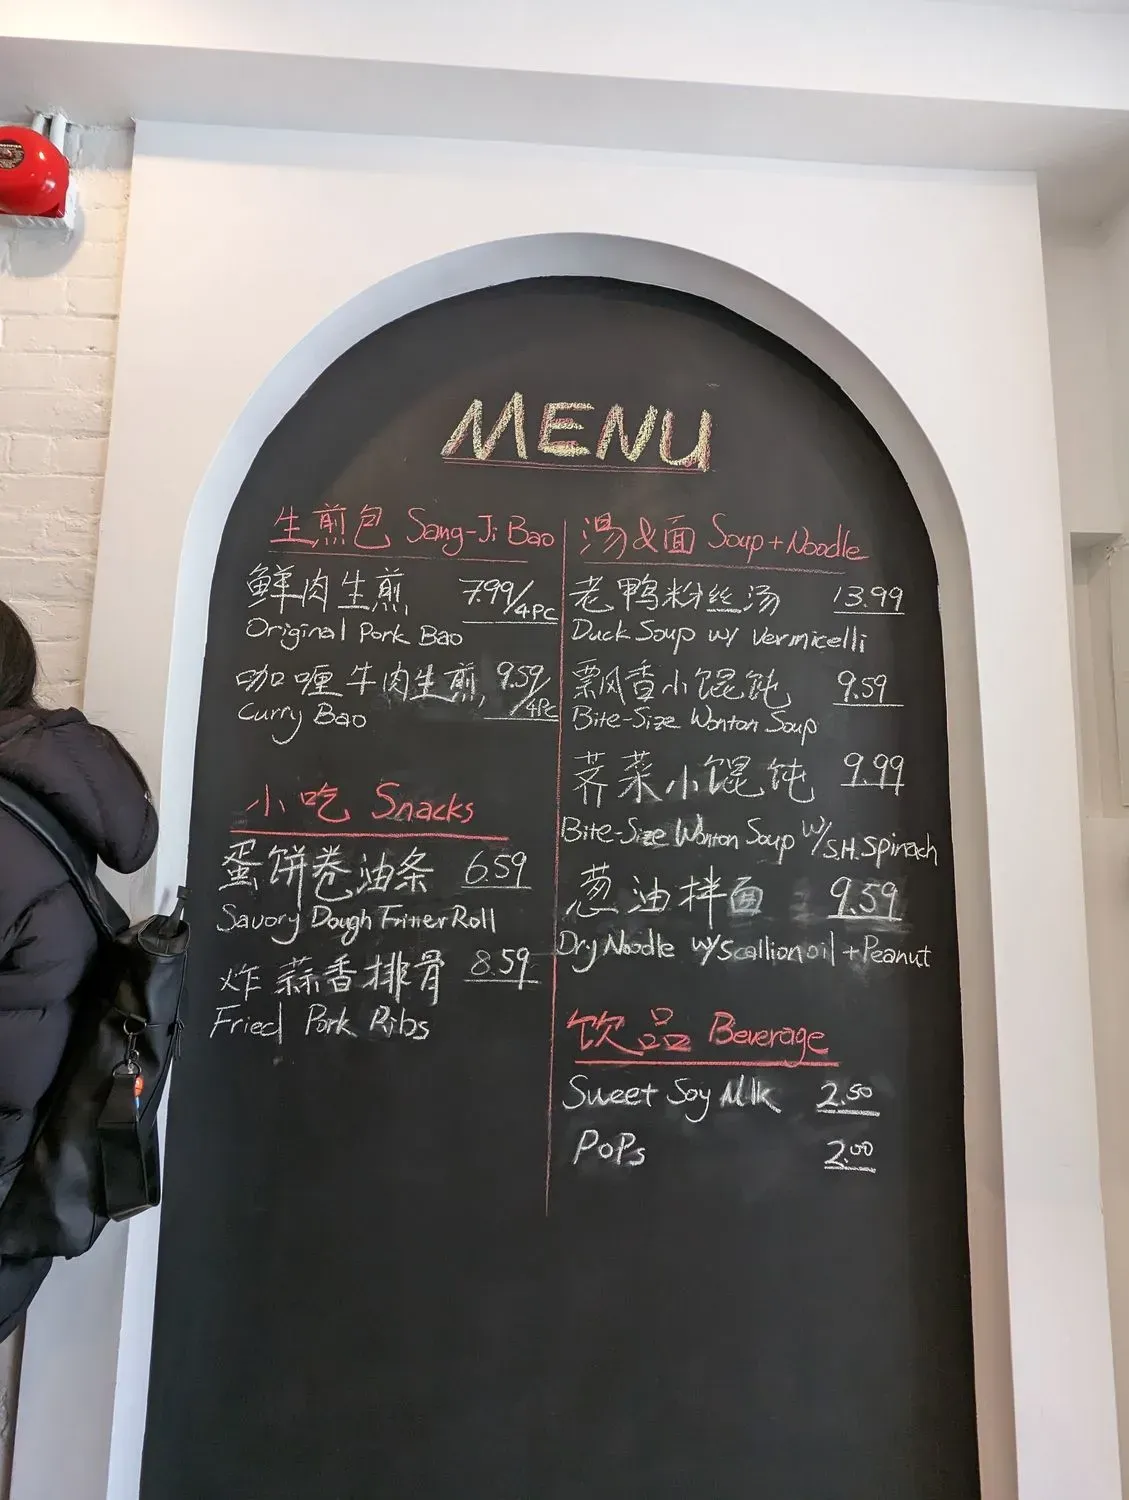 MENU
生煎包 Sang-Ji Bao
鲜肉生煎 7.99/4PC
Original Pork Bao
咖喱牛肉生煎 9.59/4PC
Curry Bao
小吃 Snacks
蛋饼卷油条 6.59
Savory Dough Fritter Roll
炸蒜香排骨 8.59
Fried Pork Ribs
湯&面 Soup+Noodle
老鸭粉丝汤 13.99
Duck Soup w/ Vermicelli
飘香小馄饨 9.59
Bite-Size Wonton Soup
荠菜小馄饨 9.99
Bite-Size Wonton Soup w/S.H. Spinach
葱油拌面 9.59
Dry Noodle w/scallion oil + Peanut
饮品 Beverage
Sweet Soy Milk 2.50
PoPs 2.00